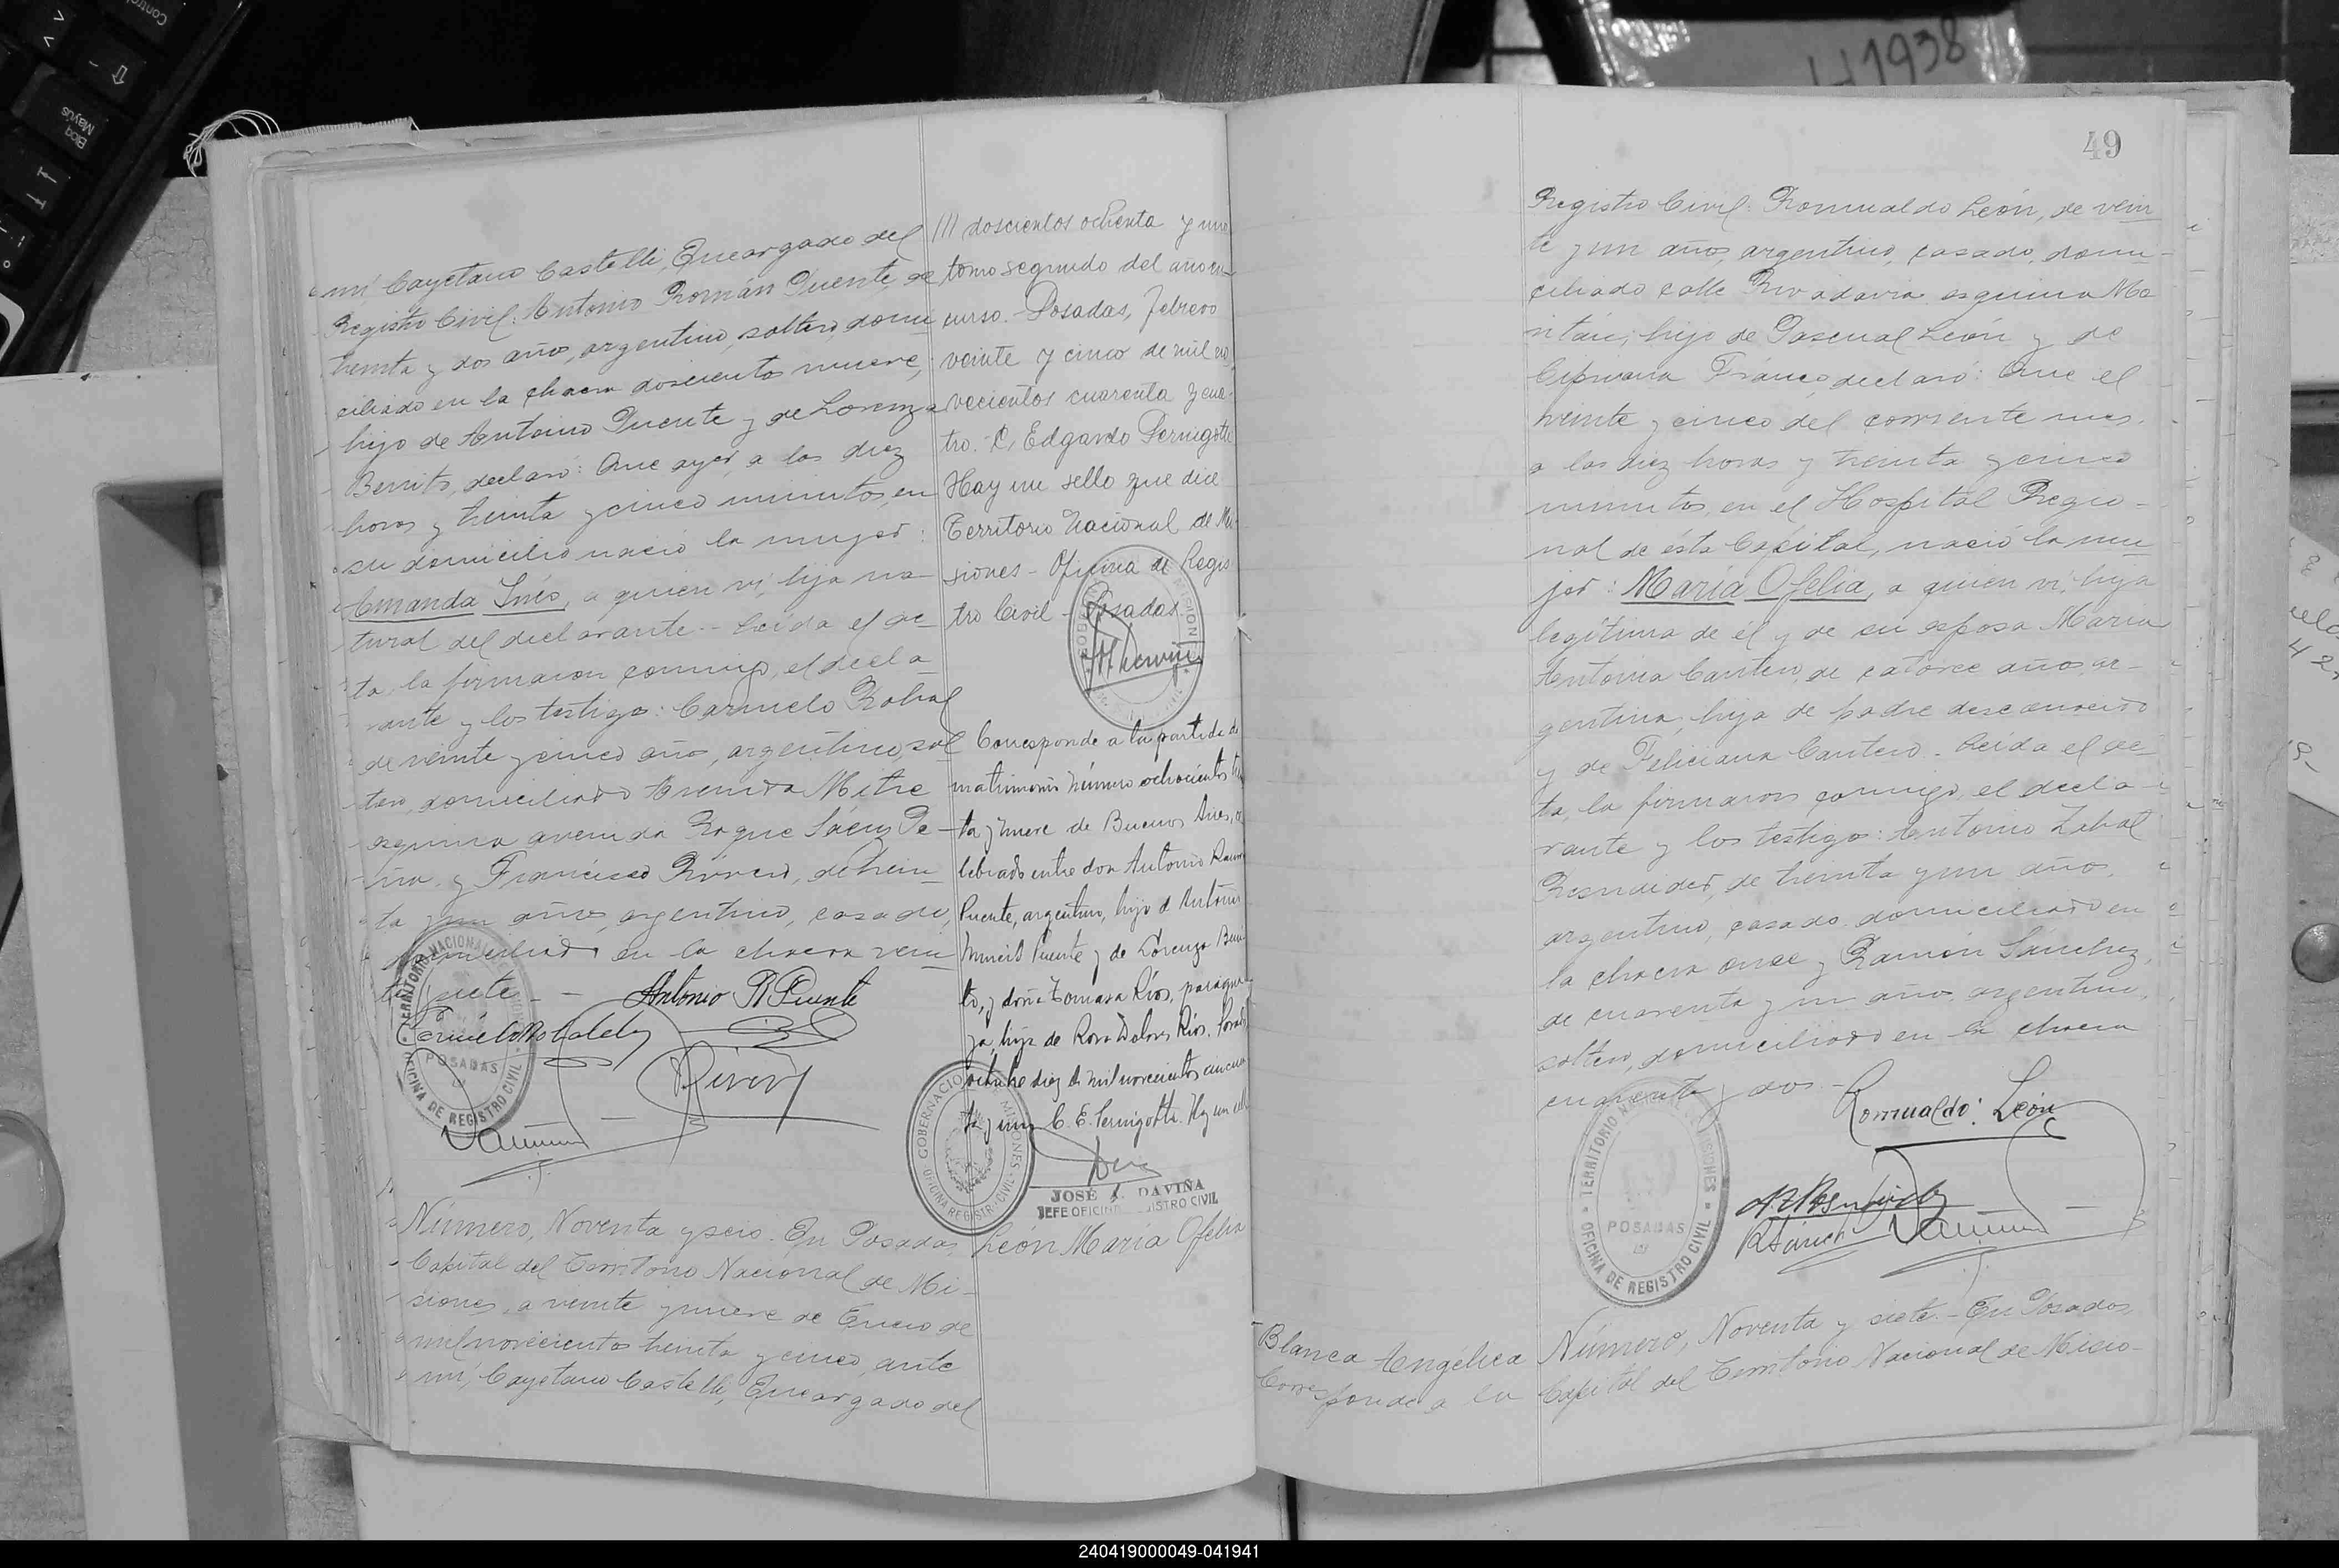 mí, Cayetano Castelli, Encargado del
Registro Civil: Antonio Román Puente, de
treinta y dos años, argentino, soltero, domi
ciliado en la chacra doscientos nueve,
hijo de Antonio Puente y de Lorenza
Benito, declaró: Que ayer, a las diez
horas y treinta y cinco minutos, en
su domicilio nació la mujer:
Amanda Inés, a quien ví, hija na
tural del declarante.- Leída el ac
ta, la firmaron conmigo, el decla
rante y los testigos: Carmelo Robal
de veinte y cinco años, argentino, sol
tero, domiciliado Avenida Mitre
esquina avenida Roque Sáenz Pe-
ña, y Francisco Rivero, de trein
ta y un años, argentino, casado,
domiciliado en la chacra vein
te y siete.- -
Antonio R Puente
TERRITORIO NACIONAL DE MISIONES
POSADAS
OFICINA DE REGISTRO CIVIL
Número, Noventa y seis. En Posadas
Capital del Territorio Nacional de Mi-
siones, a veinte y nueve de Enero de
mil novecientos treinta y cinco, ante
mí, Cayetano Castelli, Encargado del
/// doscientos ochenta y uno
tomo segundo del año en
curso.- Posadas, febrero
veinte y cinco de mil no
vecientos cuarenta y cua-
tro.- C. Edgardo Pernigotti
Hay un sello que dice
Territorio Nacional de Mi-
siones - Oficina de Regis
tro Civil - Posadas
Corresponde a la partida de
matrimonio número ochocientos trein
ta y nueve de Buenos Aires, ce
lebrado entre don Antonio Ramón
Puente, argentino, hijo de Antonio
Puente y de Lorenza Beni
to, y doña Tomasa Ríos, paragua
ya, hija de Rosa Dolores Ríos. Posadas
octubre diez de mil novecientos cincuen
ta y uno C. E. Pernigotti. Hay un sello
GOBERNACION MISIONES
OFICINA REGISTRO CIVIL
JOSÉ DAVIÑA
JEFE OFICINA REGISTRO CIVIL
León María Ofelia
49
Registro Civil: Romualdo León, de vein
te y un años, argentino, casado, domi-
ciliado calle Rivadavia esquina Mo
ritán, hijo de Pascual León y de
Cipriana Franco, declaró: Que el
veinte y cinco del corriente mes,
a las diez horas y treinta y cinco
minutos, en el Hospital Regio-
nal de ésta Capital, nació la mu
jer: María Ofelia, a quien ví, hija
legítima de él y de su esposa María
Antonia Cantero, de catorce años, ar-
gentina, hija de padre desconocido
y de Feliciana Cantero.- Leída el ac
ta, la firmaron conmigo, el decla-
rante y los testigos: Antonio Zabal
Resnaider, de treinta y un años,
argentino, casado, domiciliado en
la chacra once y Ramón Sánchez,
de cuarenta y un años, argentino,
soltero, domiciliado en la chacra
cuarenta y dos.-
Romualdo León
TERRITORIO NACIONAL DE MISIONES
POSADAS
OFICINA DE REGISTRO CIVIL
Blanca Angélica
Corresponde a la
Número, Noventa y siete.- En Posadas,
Capital del Territorio Nacional de Misio-
H1938
240419000049-041941